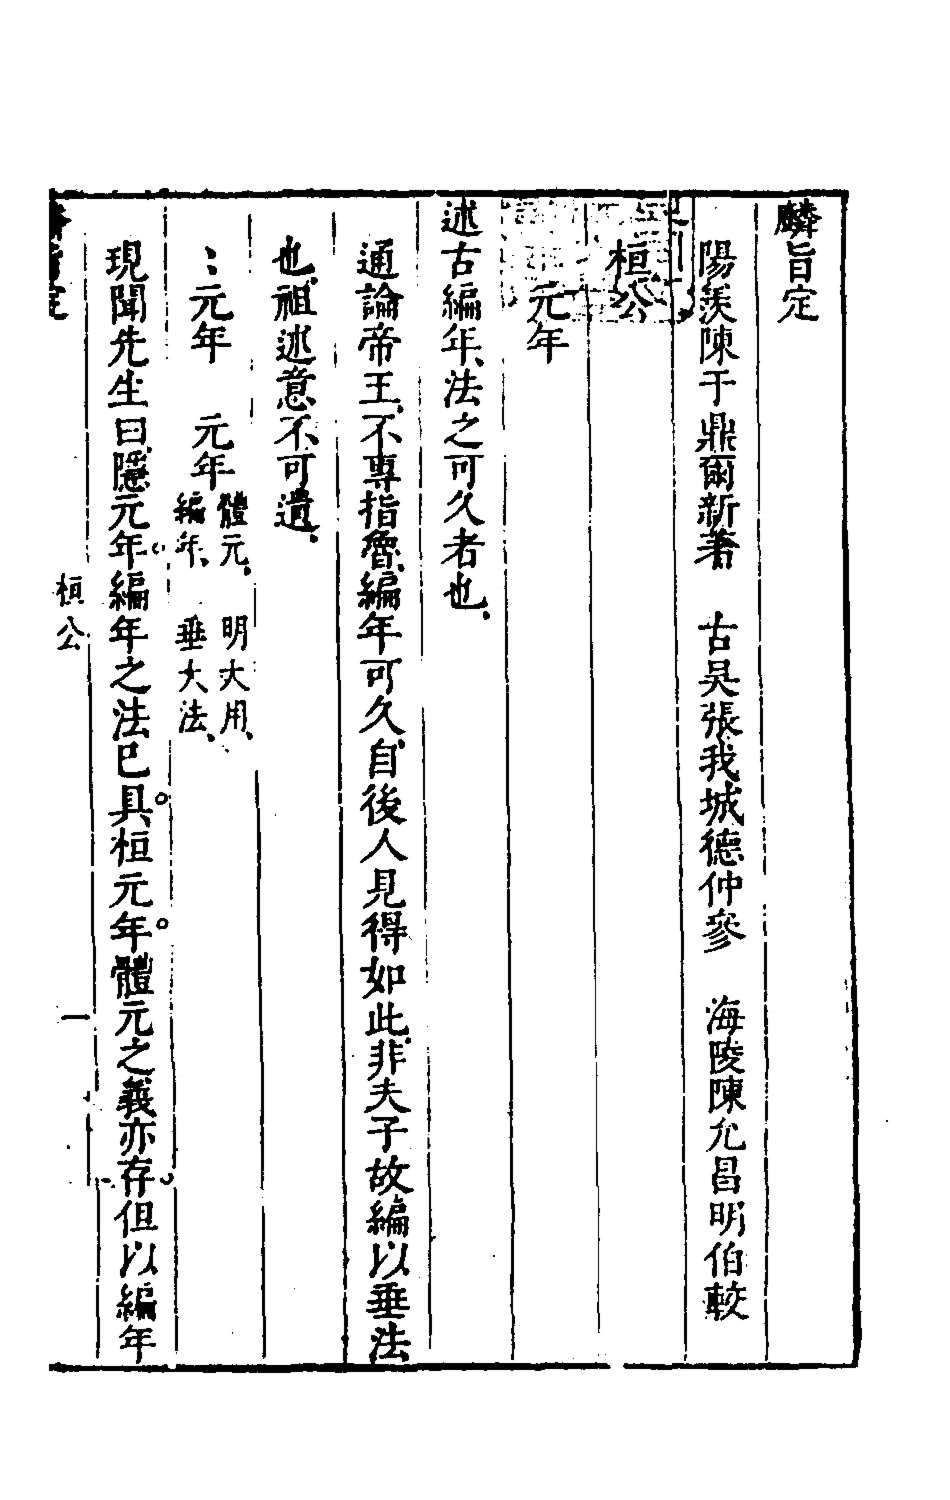 麟旨定
陽羨陳于鼎爾新著　古吴張我城德仲參　海陵陳允昌明伯較
桓公
元年
述古編年、法之可久者也、
通論帝王、不專指魯、編年可久、自後人見得如此、非夫子故編以垂法
也、祖述意不可遺、
：元年　元年　體元、　明大用、
編年、　垂大法、
現聞先生曰、隱元年。編年之法已具。桓元年。體元之義亦存。但以編年
桓公
一